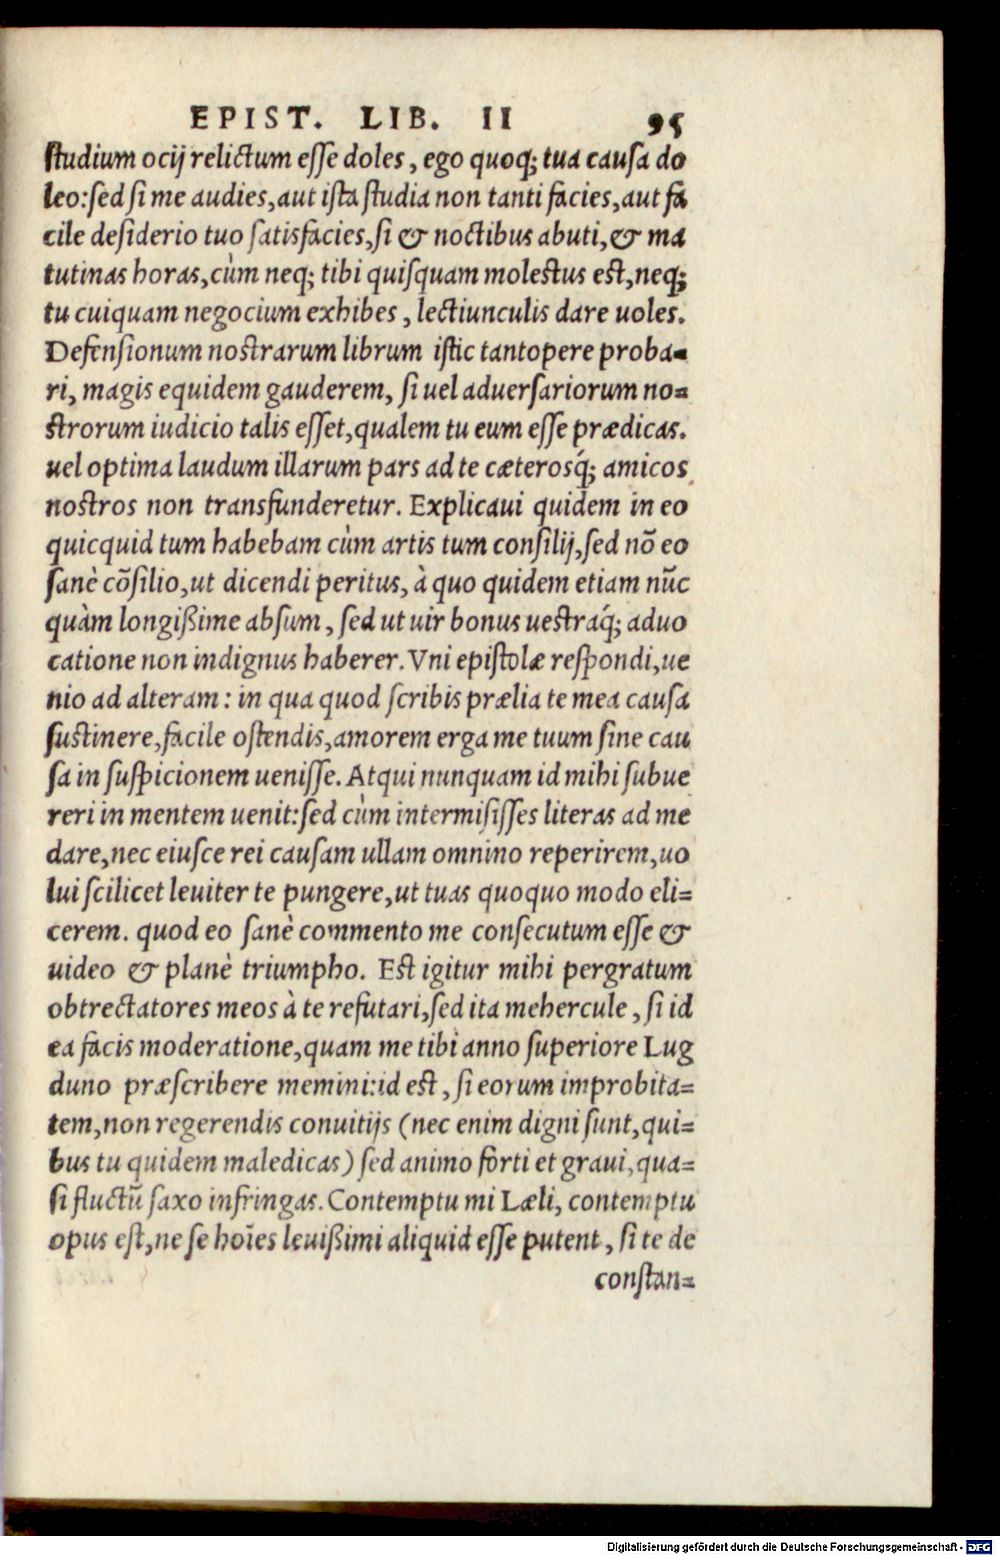 EPIST. LIB. II 95
studium ocij relictum esse doles, ego quoq; tua causa do
leo: sed si me audies, aut ista studia non tanti facies, aut fa
cile desiderio tuo satisfacies, si & noctibus abuti, & ma
tutinas horas, cùm neq; tibi quisquam molestus est, neq;
tu cuiquam negocium exhibes, lectiunculis dare uoles.
Defensionum nostrarum librum istic tantopere proba-
ri, magis equidem gauderem, si uel aduersariorum no=
strorum iudicio talis esset, qualem tu eum esse prædicas.
uel optima laudum illarum pars ad te cæterosq́; amicos
nostros non transfunderetur. Explicaui quidem in eo
quicquid tum habebam cùm artis tum consilij, sed nõ eo
sanè cõsilio, ut dicendi peritus, à quo quidem etiam nũc
quàm longißime absum, sed ut uir bonus uestraq́; aduo
catione non indignus haberer. Vni epistolæ respondi, ue
nio ad alteram: in qua quod scribis prælia te mea causa
sustinere, facile ostendis, amorem erga me tuum sine cau
sa in suspicionem uenisse. Atqui nunquam id mihi subue
reri in mentem uenit: sed cùm intermisisses literas ad me
dare, nec eiusce rei causam ullam omnino reperirem, uo
lui scilicet leuiter te pungere, ut tuas quoquo modo eli=
cerem. quod eo sanè commento me consecutum esse &
uideo & planè triumpho. Est igitur mihi pergratum
obtrectatores meos à te refutari, sed ita mehercule, si id
ea facis moderatione, quam me tibi anno superiore Lug
duno præscribere memini: id est, si eorum improbita=
tem, non regerendis conuitijs (nec enim digni sunt, qui=
bus tu quidem maledicas) sed animo forti et graui, qua=
si fluctũ saxo infringas. Contemptu mi Læli, contemptu
opus est, ne se hoĩes leuißimi aliquid esse putent, si te de
constan=
Digitalisierung gefördert durch die Deutsche Forschungsgemeinschaft - DFG